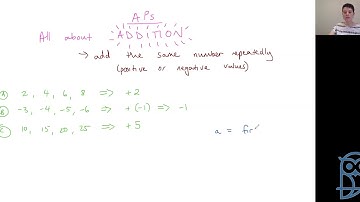 APs
All about ADDITION
→ add the same number repeatedly
(positive or negative values)
A 2, 4, 6, 8 ⇒ +2
B -3, -4, -5, -6 ⇒ +(-1) ⇒ -1
C 10, 15, 20, 25 ⇒ +5
a = fir